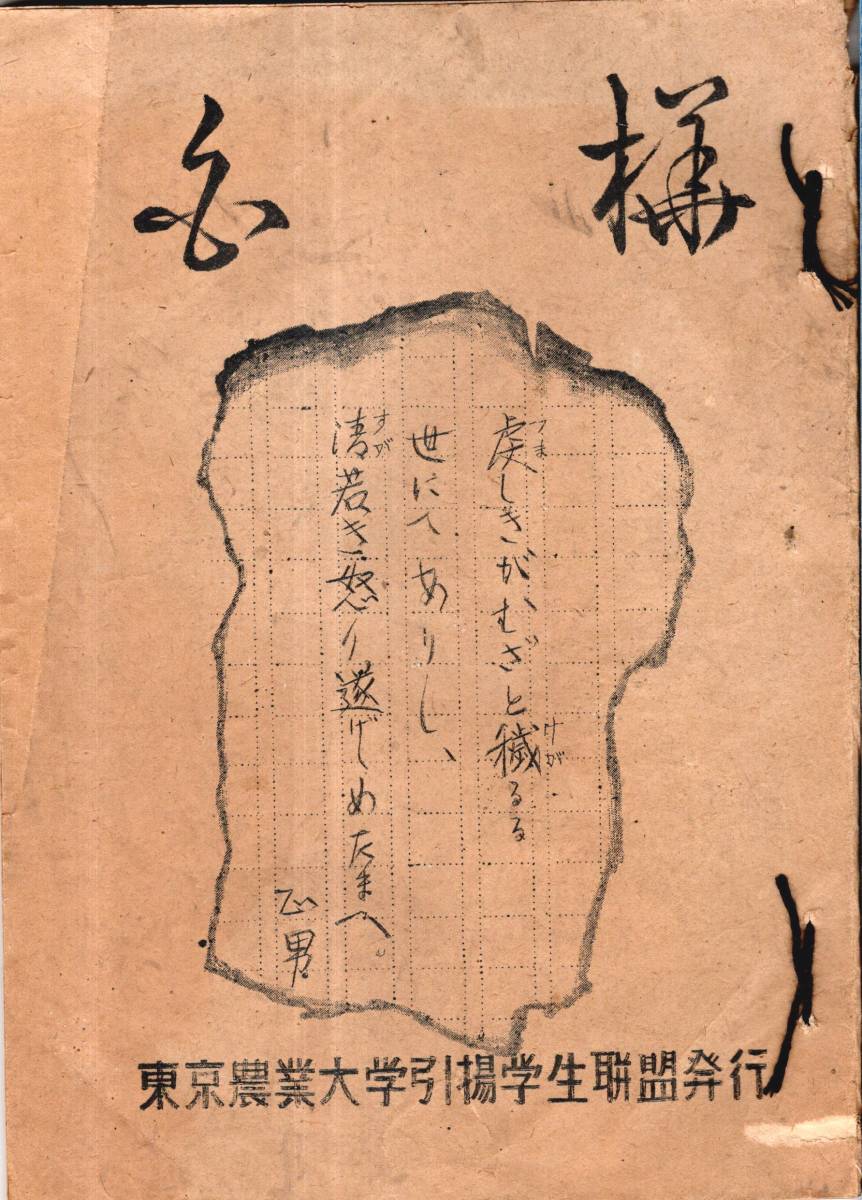 白樺
虔しきが、むざと穢るる
つま
けが
世にてありし、
清若き怒り遂げしめたまへ。
すが
正男
東京農業大学引揚学生聯盟発行